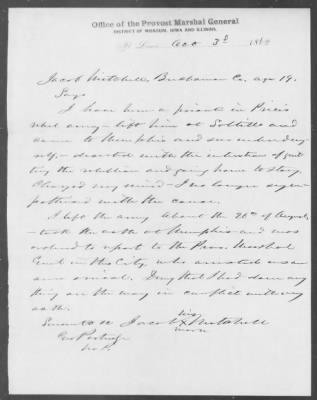 Office of the Provost Marshal General
DISTRICT OF MISSOURI, IOWA AND ILLINOIS,
St Louis Oct 3d 186
Jacob Mitchell, Buchanan Co, age 19.
Says
I have been a private in Price's
rebel army - left him at and
came to Memphis and surrendered my
self - deserted with the intention of quit
ting the rebellion and going home to stay.
Changed my mind - I no longer sym
pathized with the cause.
I left the army about the 26th of August,
- took the oath at Memphis and was
ordered to report to the Provo. Marshal
Genl in this City, who arrested me on
my arrival. Deny that I had done any
thing on the way in conflict with my
oath.
his
Jacob X Mitchell
mark